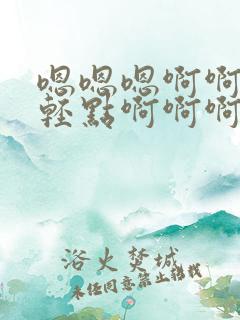 嗯嗯嗯啊啊
輕點啊啊啊
浴火焚城
未经同意禁止转载